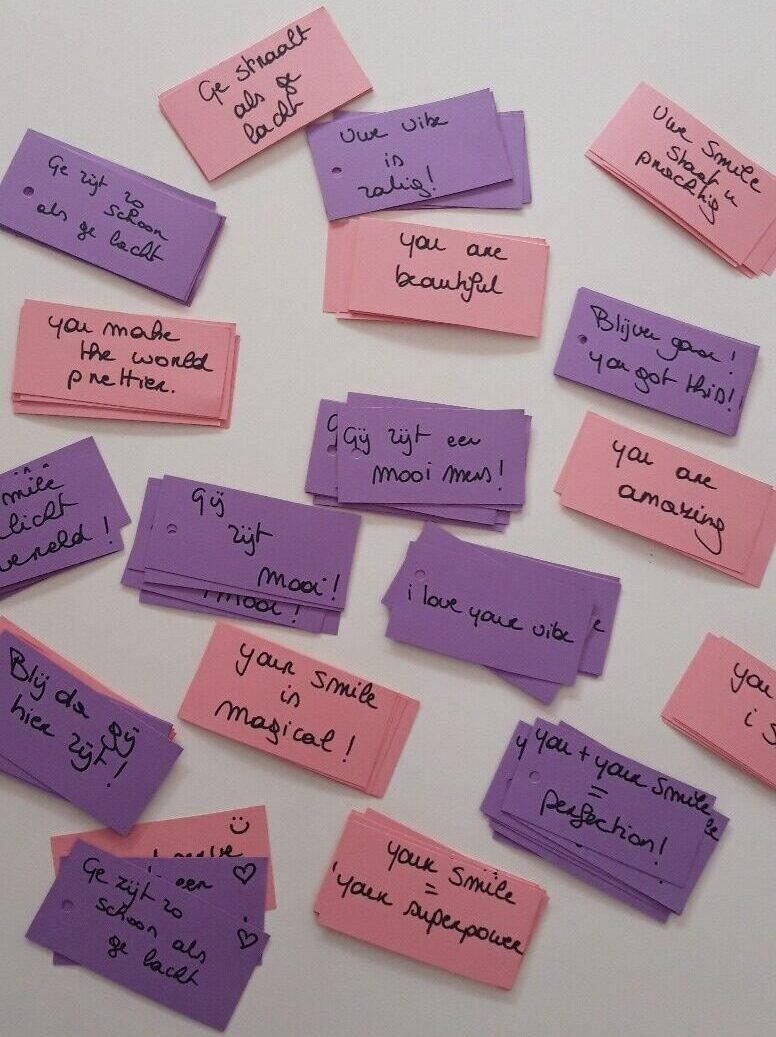 Ge straalt
als ge
lacht
Uwe vibe
is
zalig!
Uwe smile
staat u
prachtig
Ge zijt zo
schoon
als ge lacht
you are
beautiful
you make
the world
prettier.
Blijven gaan!
you got this!
Gij zijt een
mooi mens!
you are
amazing
smile
licht
wereld!
Gij
zijt
mooi!
mooi!
i love your vibe
Blij da gij
hier zijt!
your smile
is
magical!
you
i s
you + your smile
=
perfection!
een
Ge zijt zo
schoon als
ge lacht
your smile
=
your superpower